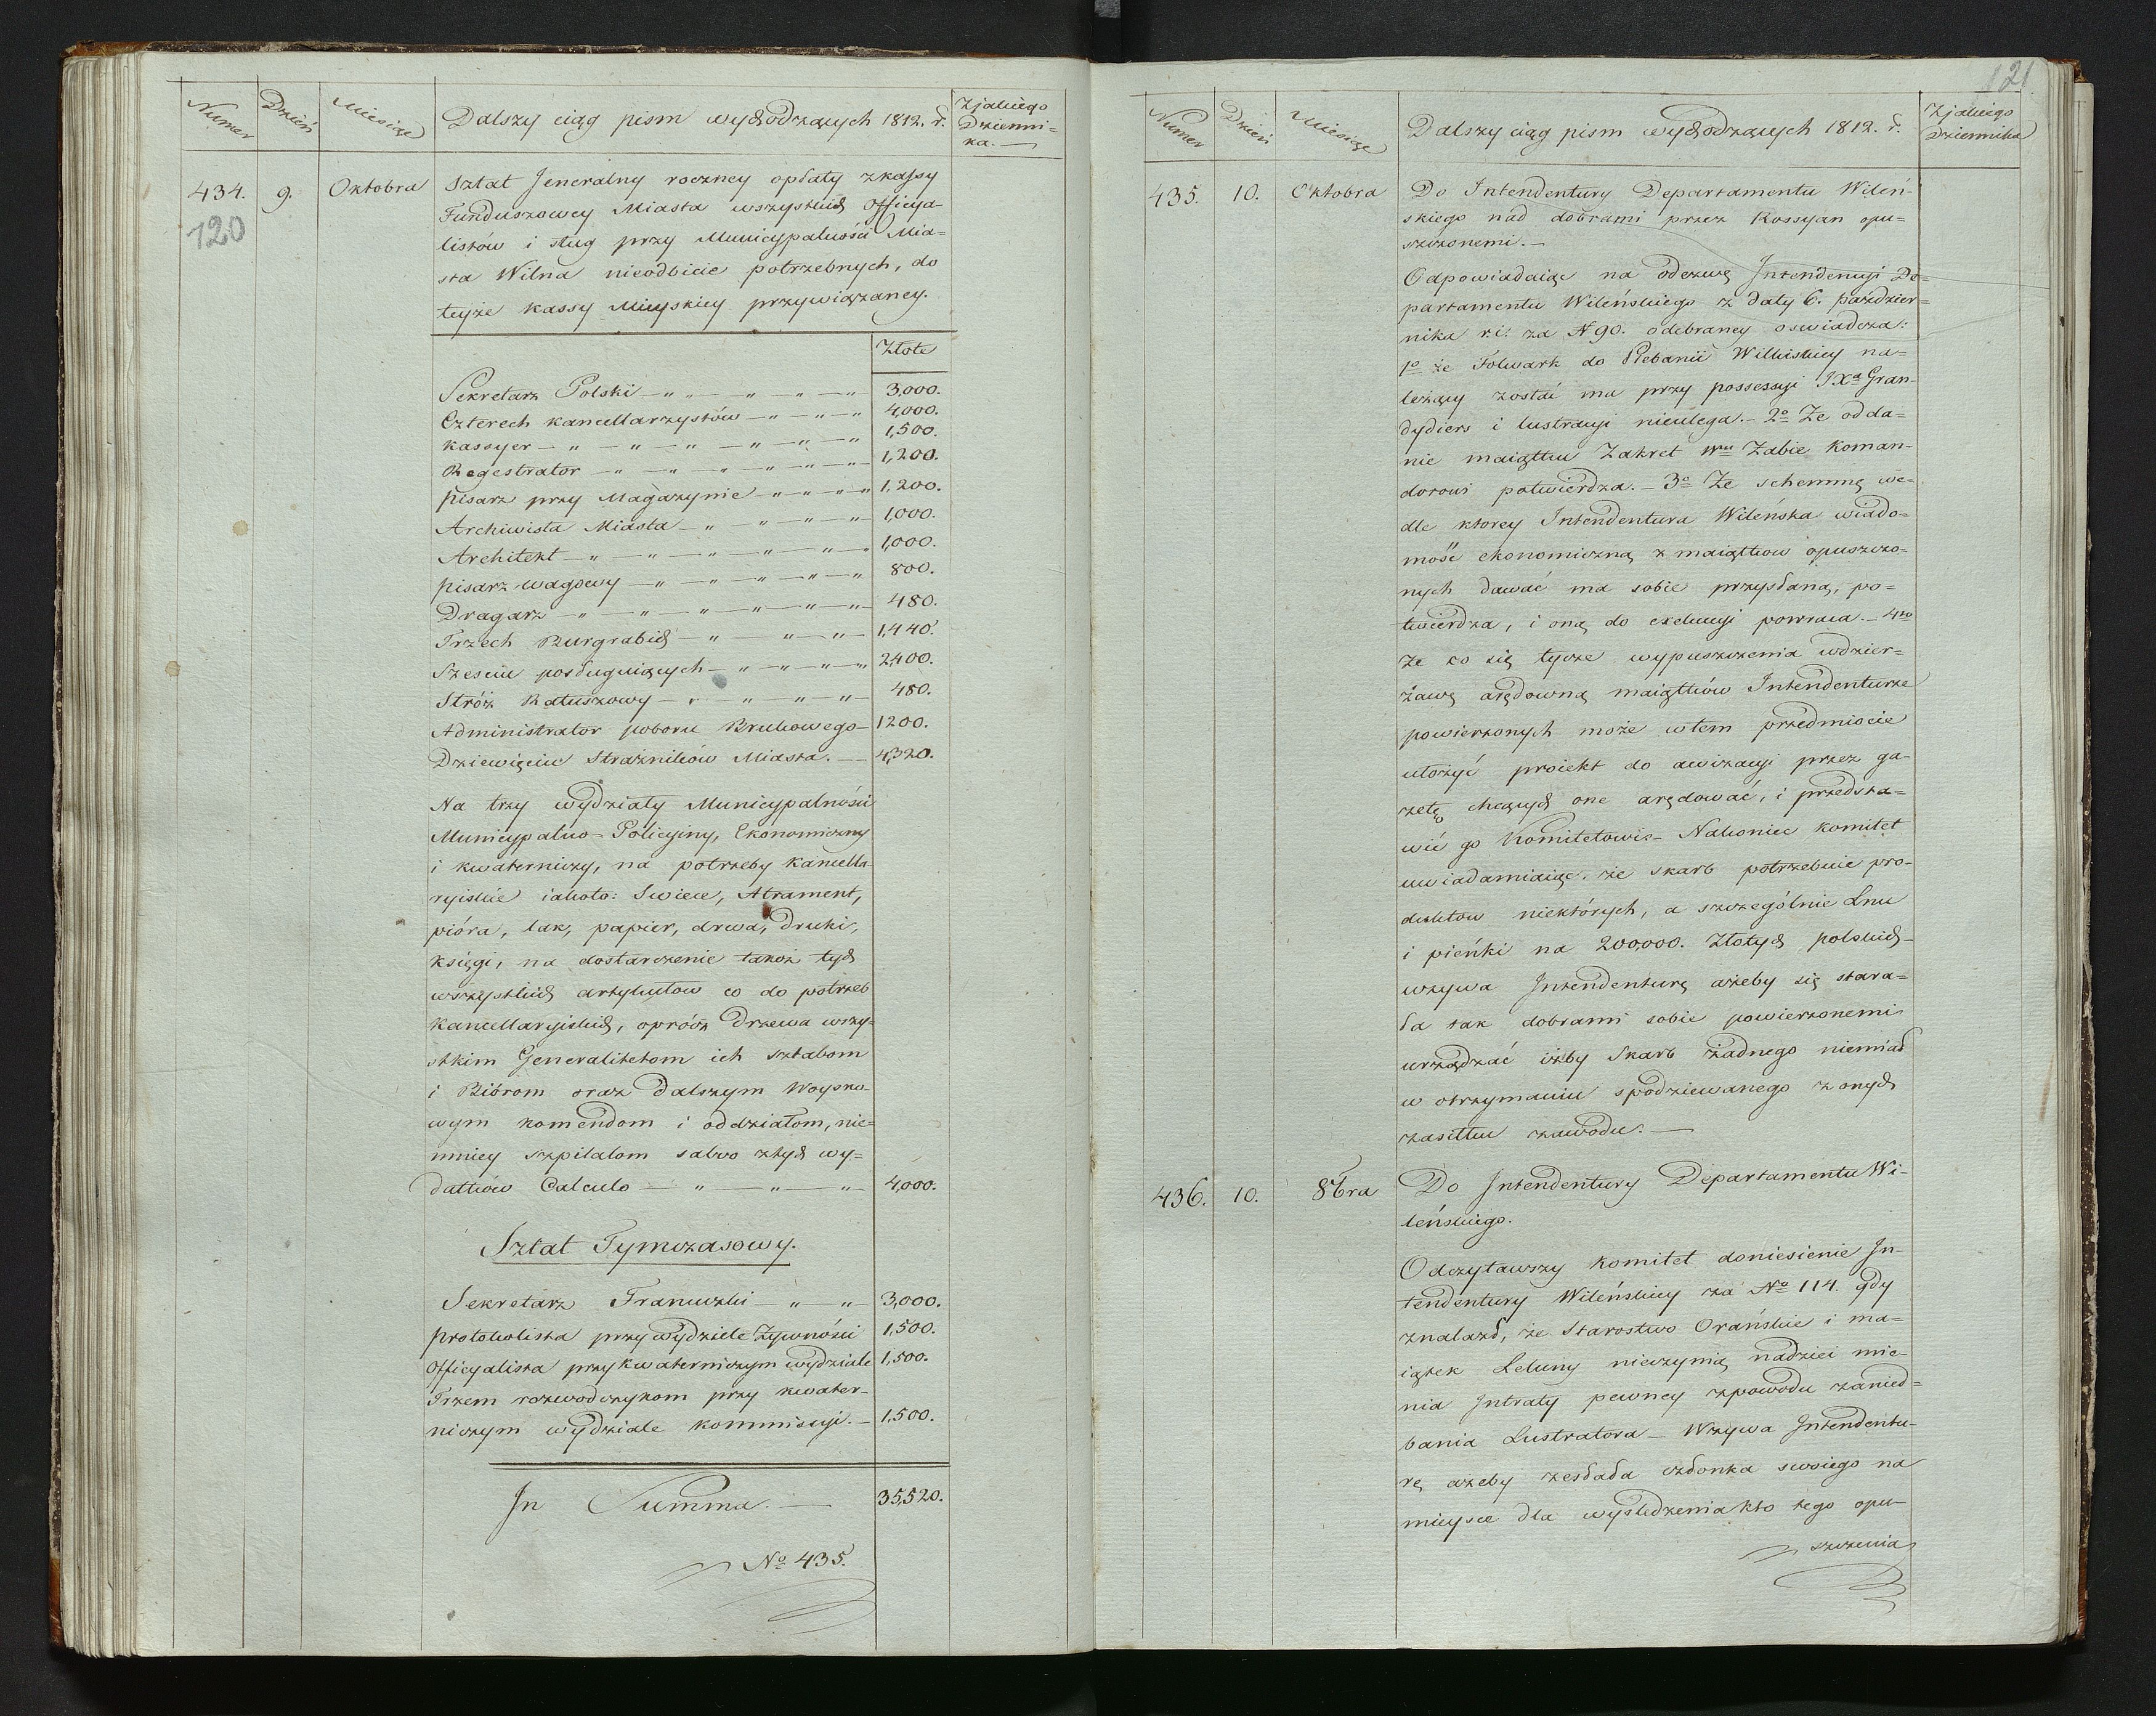 Numer Dzień Miesiąc Dalszy ciąg pism wychodzących 1812. r. Z jakiego Dzienni=
ka.
434. 9. Oktobra Sztat Jeneralny roczney opłaty z kassy
120
Funduszowey Miasta wszystkich Officya-
listów i sług przy Municypalności Mia=
sta Wilna nieodbicie potrzebnych, do
teyże kassy Mieyskiey przywiązaney.
Złote
Sekretarz Polski 3,000.
Czterech kancellarzystów 4,000.
Kassyer 1,500.
Regestrator 1,200.
Pisarz przy Magazynie 1,200.
Archiwista Miasta 1,000.
Architekt 1,000.
Pisarz wagowy 800.
Dragarz 480.
Trzech Burgrabich 1,440.
Sześciu posługuiących 2,400.
Stróż Ratuszowy 480.
Administrator poboru Brukowego 1200.
Dziewięciu Strażników Miasta. 4,320.
Na trzy wydziały Municypalności
Municypalno=Policyiny, Ekonomiczny
i kwaterniczy, na potrzeby kancella-
ryiskie iakoto: Swiece, Atrament,
pióra, lak, papier, drwa, druki,
księgi, na dostarczenie takoż tych
wszystkich artykułow co do potrzeb
Kancellaryiskich, oprócz Drzewa wszy-
stkim Generalitetom ich sztabom
i Biórom oraz Dalszym Woysko-
wym komendom i oddziałom, nie=
mniey szpitalom salvo z tych wy=
datków Calculo 4,000.
Sztat Tymczasowy.
Sekretarz Francuzki 3,000.
Protokolista przy wydziele Żywności 1,500.
Officyalista przy kwaterniczym wydziale 1,500.
Trzem rozwodczykom przy kwater-
niczym wydziale kommissyi. 1,500.
In Summa. 35,520.
No 435.
121
Numer Dzień Miesiąc Dalszy ciąg pism wychodzących 1812. r. Z jakiego
Dziennika
435. 10. Oktobra Do Intendentury Departamentu Wileń-
skiego nad dobrami przez Rossyan opu=
szczonemi.
Odpowiadaiąc na odezwę Intendencyi De=
partamentu Wileńskiego z daty 6. paździer=
nika r. i. za N 90. odebraney oswiadcza:
1o że Folwark do Plebanii Wilkiskiey na=
leżący zostać ma przy possessyi JXa Gran-
dydiers i lustracyi nieulega. 2o Że odda=
nie maiątku Zakret Wmu Zabie Koman-
dorowi potwierdza. 3o Że schemmę we=
dle ktorey Intendentura Wileńska wiado=
mość ekonomiczną z maiątkow opuszczo=
nych dawać ma sobie przysłaną, po=
twierdza, i oną do exekucyi powraca. 4to
że co się tycze wypuszczenia wdzier=
żawę arędowną maiątków Intendenturze
powierzonych może wtem przedmiocie
ułożyć proiekt do awizacyi przez ga-
zetę chcących one arędować, i przedsta=
wić go Komitetowi. Nakoniec Komitet
uwiadamiaiąc że skarb potrzebuie pro-
duktow niektórych, a szczególnie Lnu
i pieńki na 200,000. Złotych polskich
wzywa Intendenturę ażeby się stara=
ła tak dobrami sobie powierzonemi
urządzać iżby Skarb żadnego niemiał
w otrzymaniu spodziewanego z onych
zasiłku zawodu.
436. 10. 8bra Do Intendentury Departamentu Wi-
leńskiego.
Odczytawszy Komitet doniesienie In-
tendentury Wileńskiey za No 114. gdy
znalazł, że Starostwo Orańskie i ma=
iątek Leluny nieczynią nadziei mie-
nia Intraty pewney zpowodu zanied=
bania Lustratora – Wzywa Intendentu-
rę ażeby zesłała członka swoiego na
mieysce dla wyśledzenia kto tego opu-
szczenia